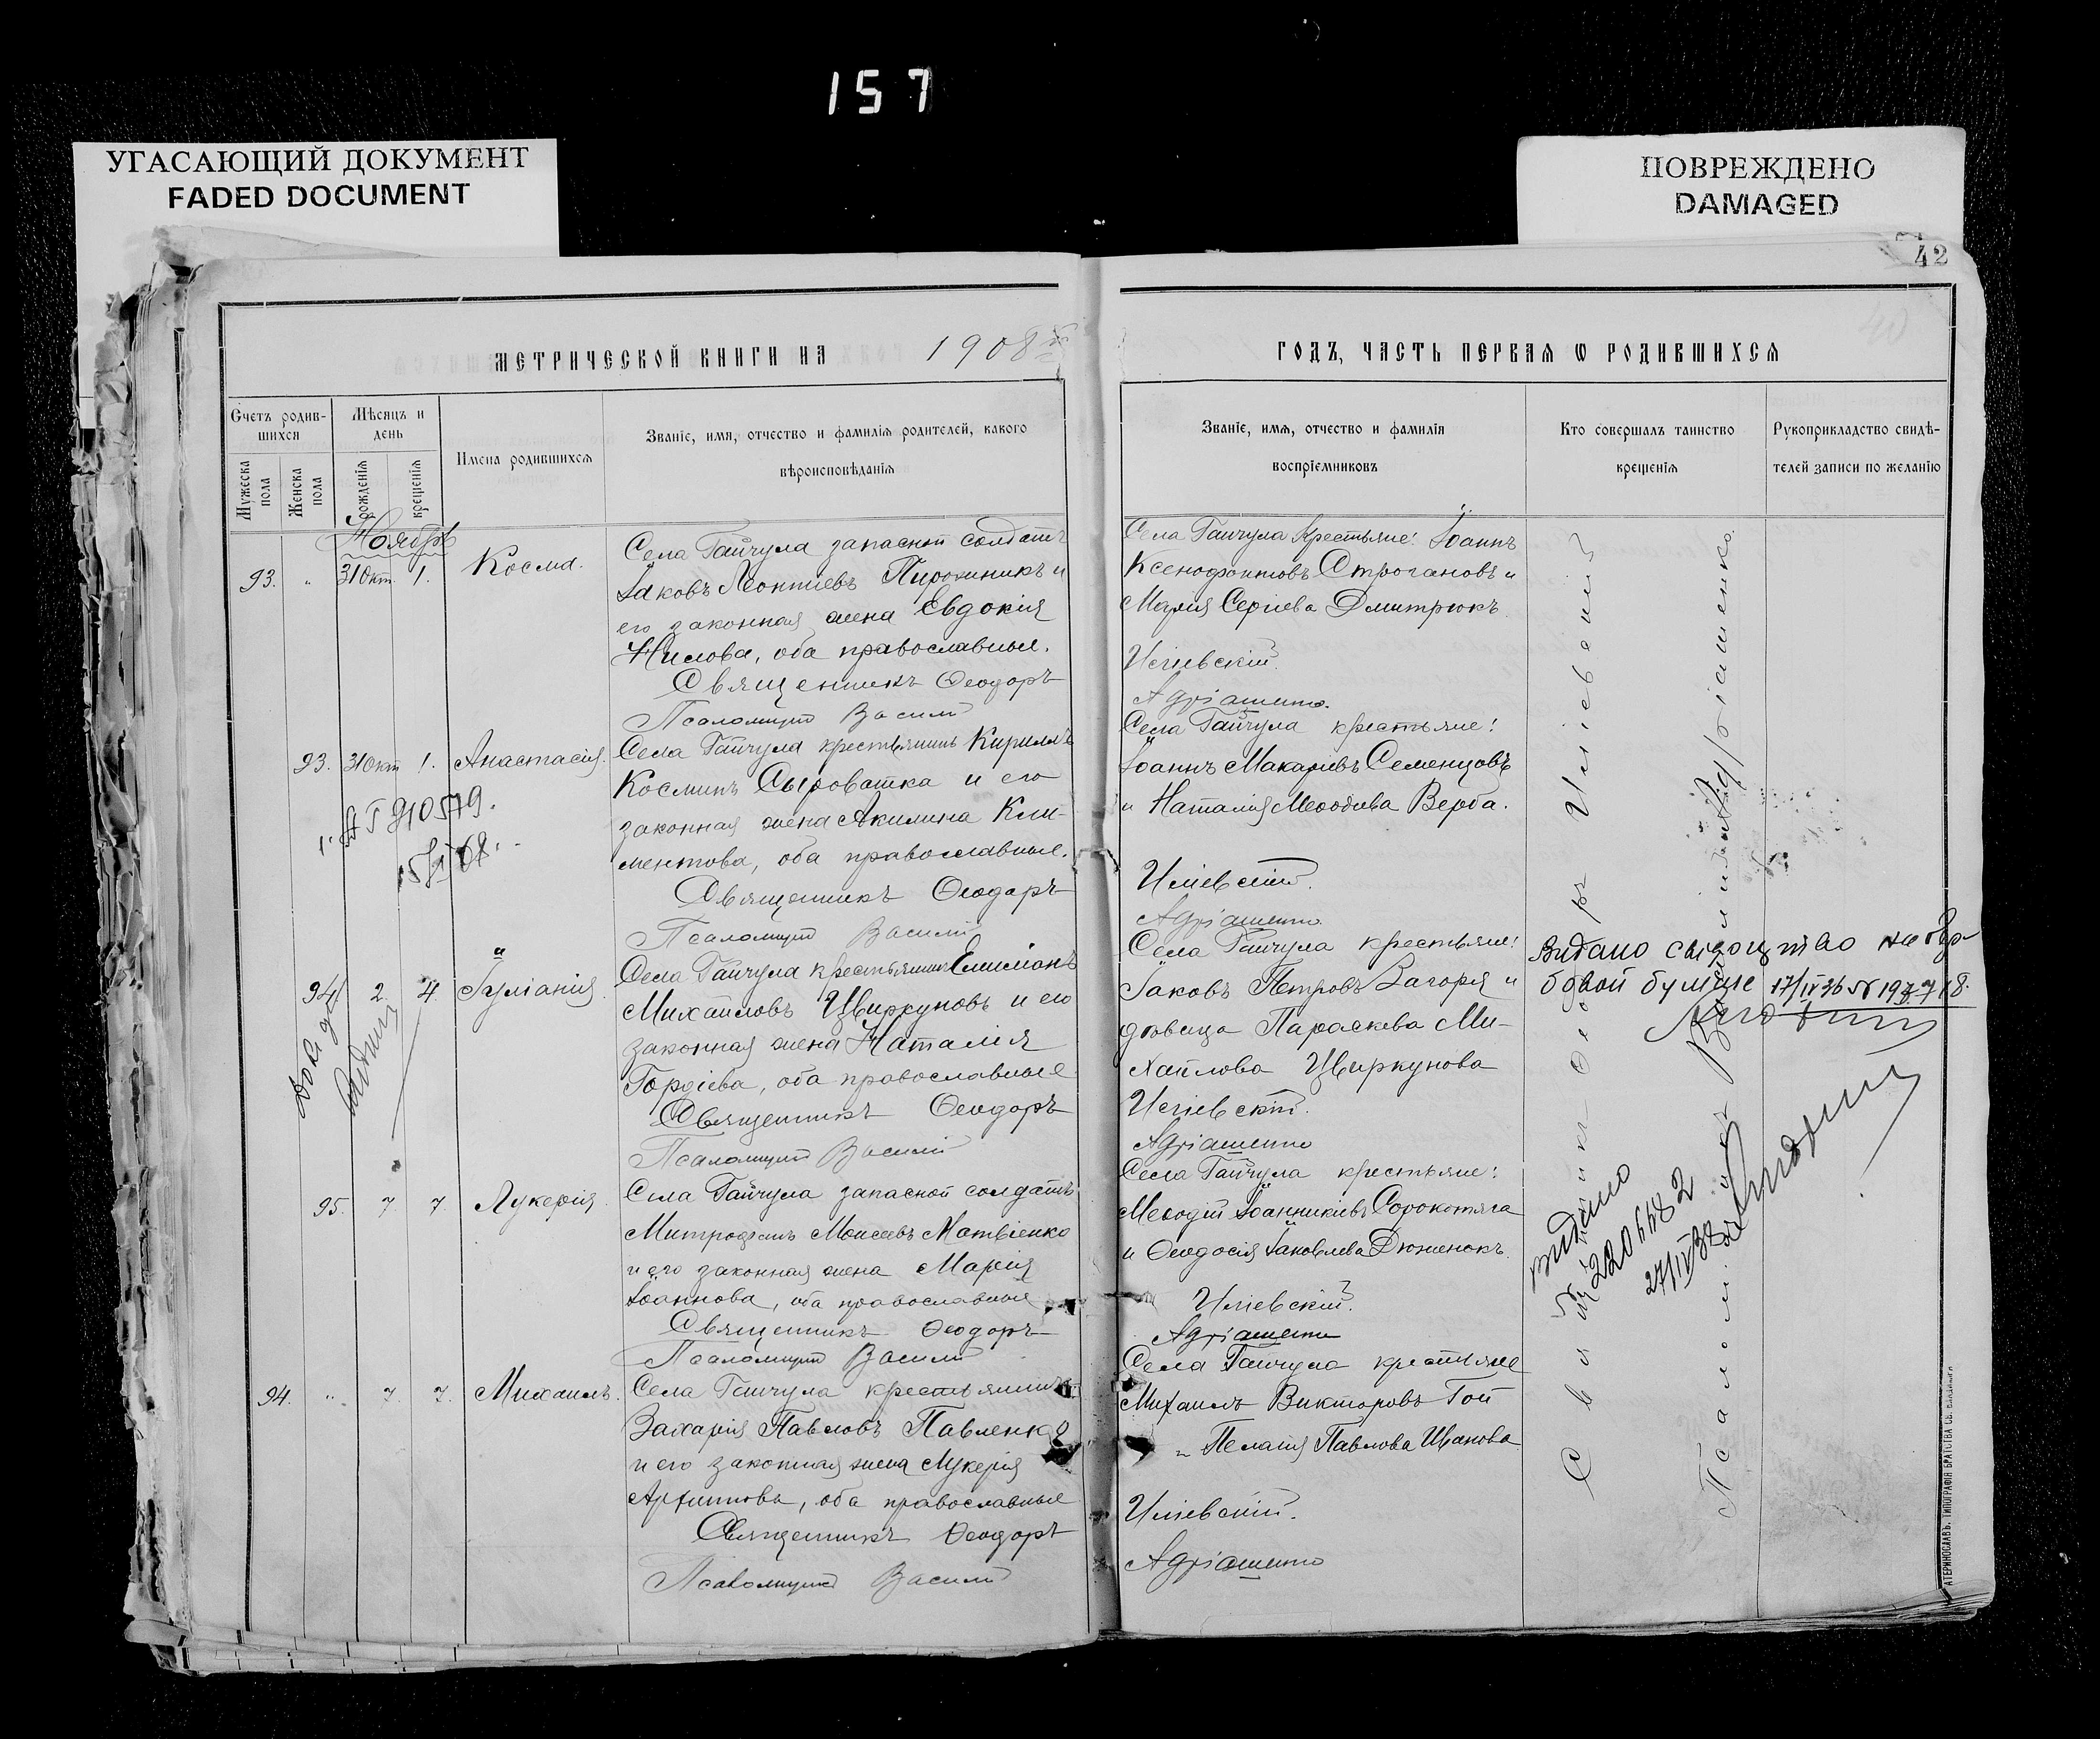 157
УГАСАЮЩИЙ ДОКУМЕНТ
FADED DOCUMENT
ПОВРЕЖДЕНО
DAMAGED
42
МЕТРИЧЕСКОЙ КНИГИ НА 1908
ГОДЪ, ЧАСТЬ ПЕРВАЯ Ѡ РОДИВШИХСЯ
Счетъ родив-
шихся
Мужеска пола
Женска пола
Мѣсяцъ и
день
рожденія
крещенія
Имена родившихся
Званіе, имя, отчество и фамилія родителей, какого
вѣроисповѣданія
Званіе, имя, отчество и фамилія
воспріемниковъ
Кто совершалъ таинство
крещенія
Рукоприкладство свидѣ-
телей записи по желанію
Ноябрь
93. " 31 Окт. 1. Косма.
Села Гайчула запасной солдатъ
Іаковъ Леонтіевъ и
его законная жена Евдокія
Нилова, оба православные.
Священникъ Ѳеодоръ
Псаломщикъ Василій
Села Гайчула крестьяне: Іоаннъ
Ксенофонтовъ Строгановъ и
Марія Сергіева Дмитрюкъ
Иліевскій.
Адріашенко.
93. 31 Окт 1. Анастасія.
Села Гайчула крестьянинъ Кириллъ
Косминъ Сыроватка и его
законная жена Акилина Кли-
ментова, оба православные.
Священникъ Ѳеодоръ
Псаломщикъ Василій
Села Гайчула крестьяне:
Іоаннъ Макаріевъ Семенцовъ
и Наталія Меѳодіева Верба.
Иліевскій.
Адріашенко
94 2. 4. Іуліанія.
Села Гайчула крестьянинъ Емиліанъ
Михайловъ Цвиркуновъ и его
законная жена Наталія
Гордіева, оба православные
Священникъ Ѳеодоръ
Псаломщикъ Василій
Села Гайчула крестьяне:
Іаковъ Петровъ Загорія и
дѣвица Параскева Ми-
хайлова Цвиркунова
Иліевскій.
Адріашенко
95. 7. 7. Лукерія.
Села Гайчула запасной солдатъ
Митрофанъ Моисеевъ Матвіенко
и его законная жена Марія
Іоаннова, оба православные
Священникъ Ѳеодоръ
Псаломщикъ Василій
Села Гайчула крестьяне:
Меѳодій Іоанникіевъ Сорокотяга
и Ѳеодосія Іаковлева Дюженокъ.
Иліевскій.
Адріашенко
94. " 7. 7. Михаилъ.
Села Гайчула крестьянинъ
Захарія Павловъ Павленко
и его законная жена Лукерія
Архиппова, оба православные
Священникъ Ѳеодоръ
Псаломщикъ Василій
Села Гайчула крестьяне
Михаилъ Викторовъ Гой
и Пелагія Павлова Иванова
Иліевскій.
Адріашенко
Священникъ Ѳеодоръ Иліевскій
Псаломщикъ Василій Адріашенко.
видано
2206482